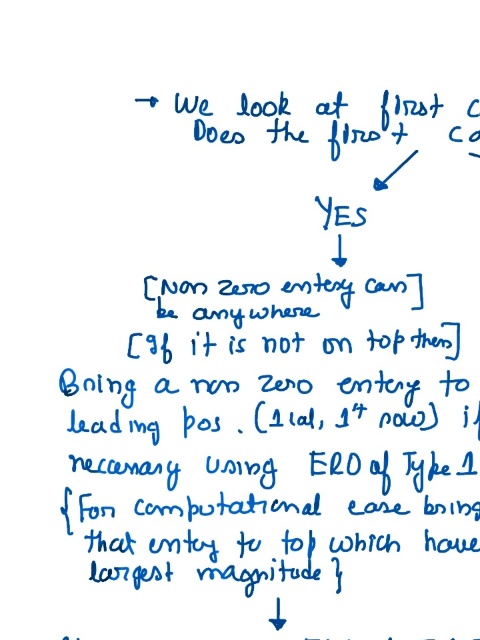 → We look at first
Does the first
YES
[Non zero entery can]
be anywhere
[If it is not on top then]
Bring a non zero entery to
leading pos. (1 col, 1st row) if
necessary using ERO of Type 1
{For computational ease bring
that entry to top which have
largest magnitude}